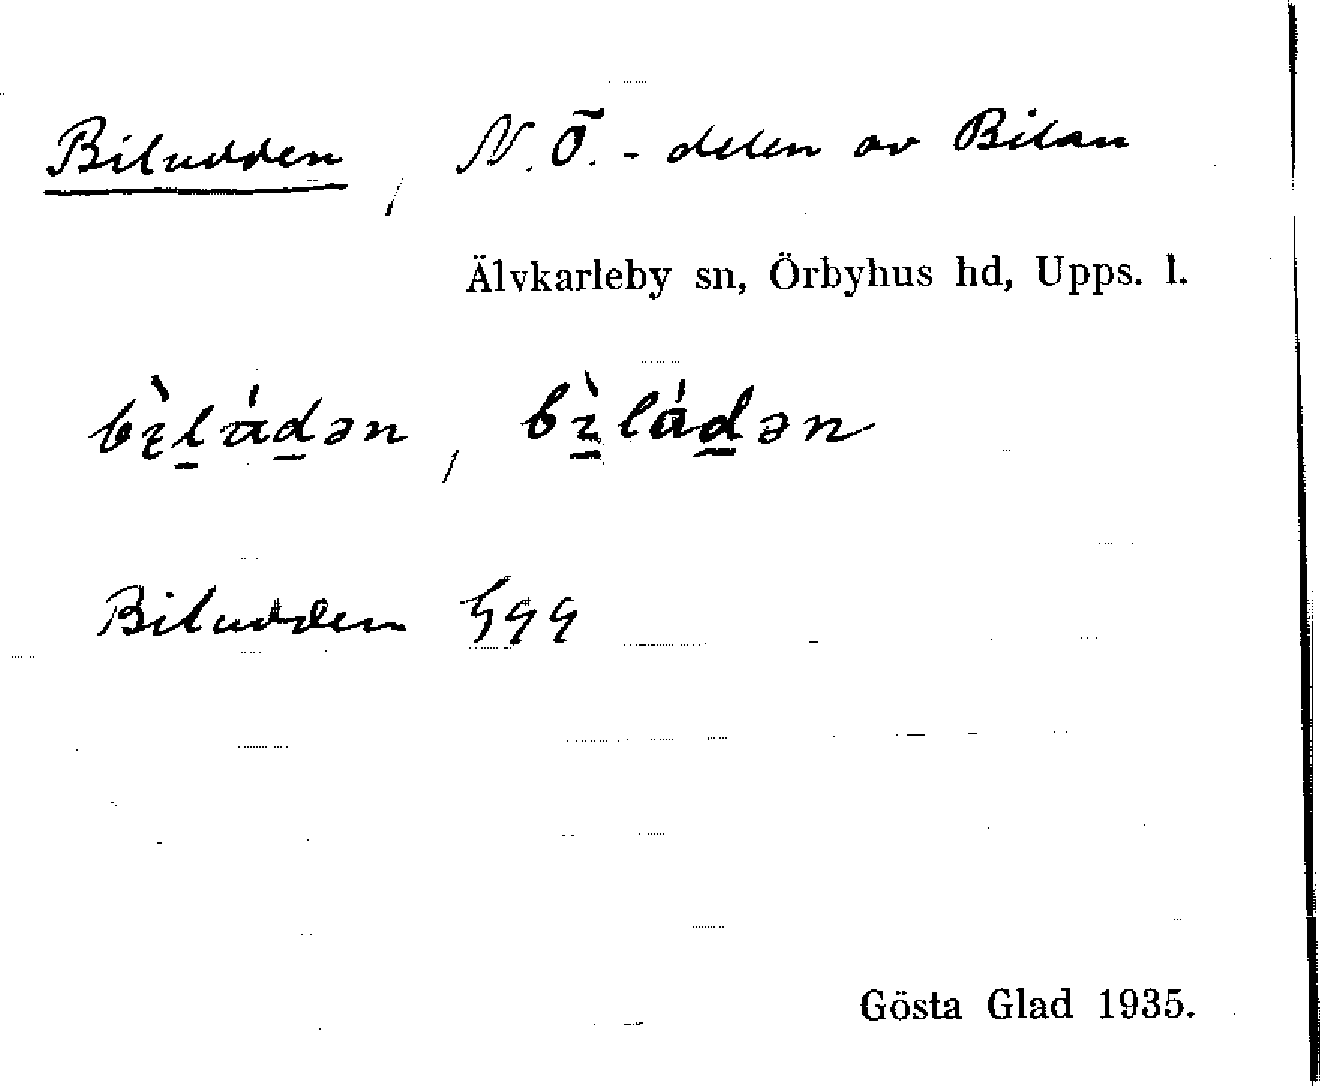 Biludden, N.Ö.-delen av Bilan
Älvkarleby sn, Örbyhus hd, Upps. l.
bìládən, bìládən
Biludden
Gösta Glad 1935.